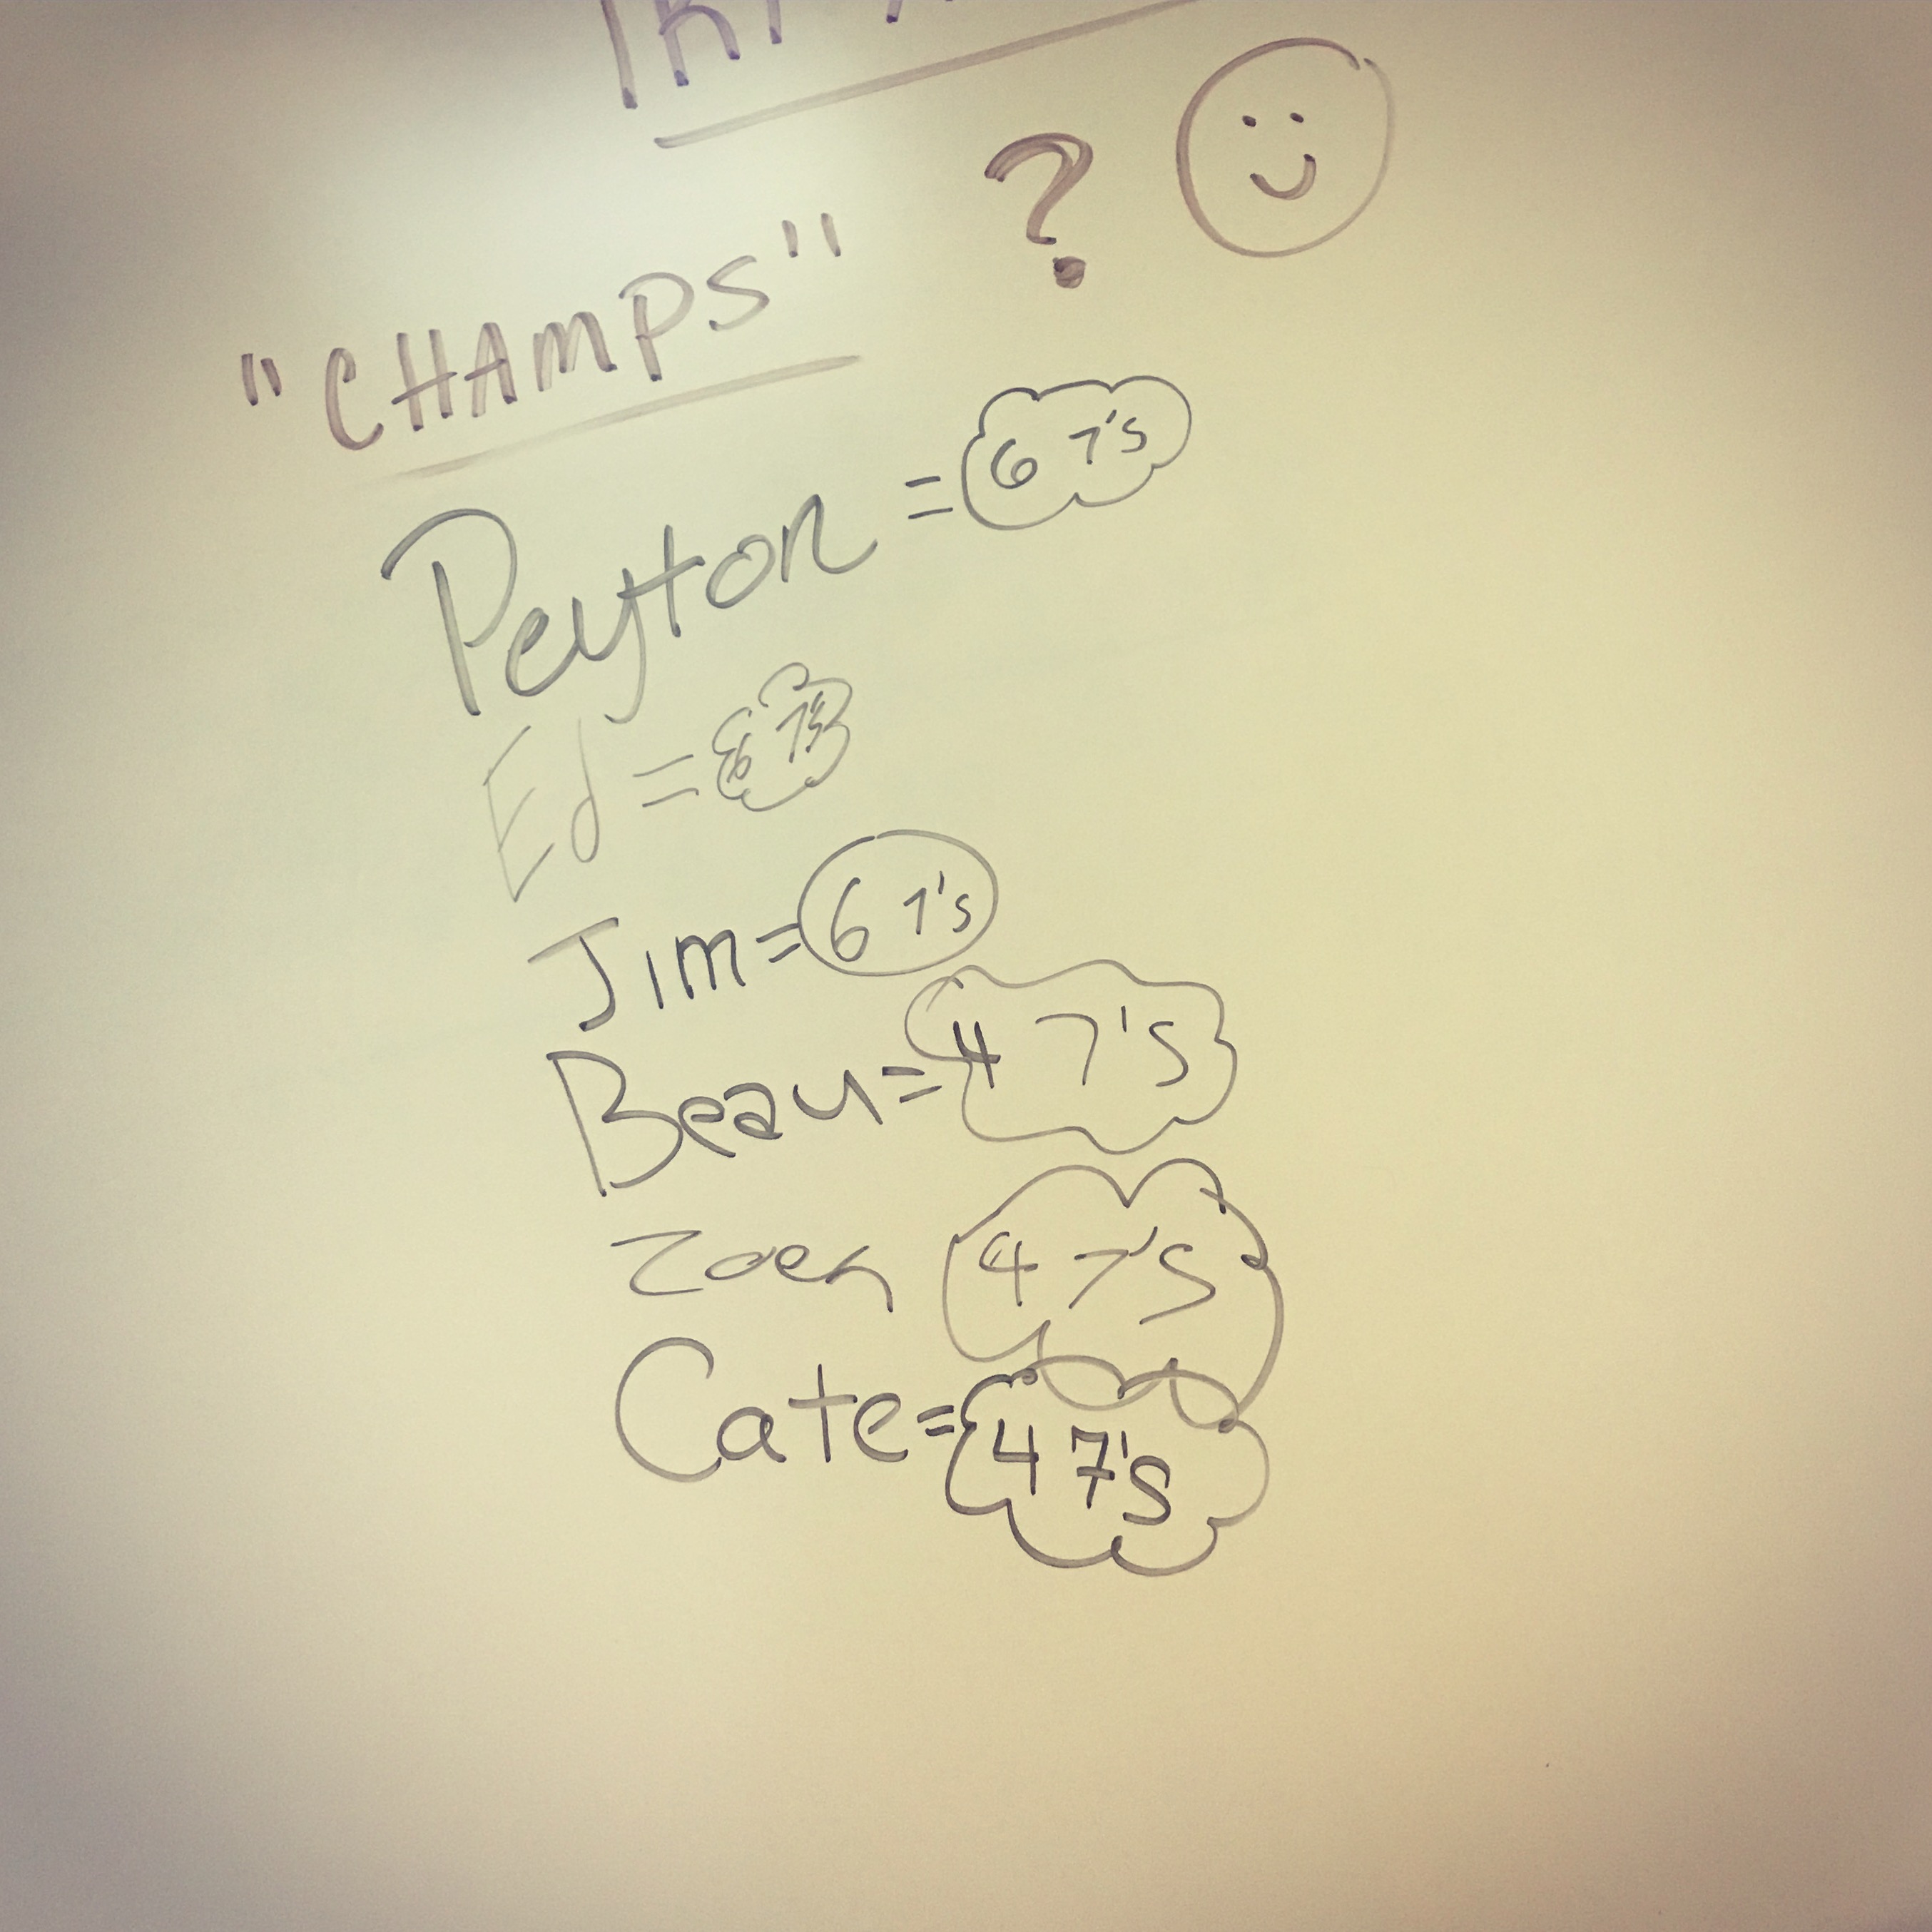 "CHAMPS" ?
Peyton = 6 7's
Ed = 6 7's
Jim = 6 7's
Beau = 4 7's
Zoen 4 7's
Cate = 4 7's